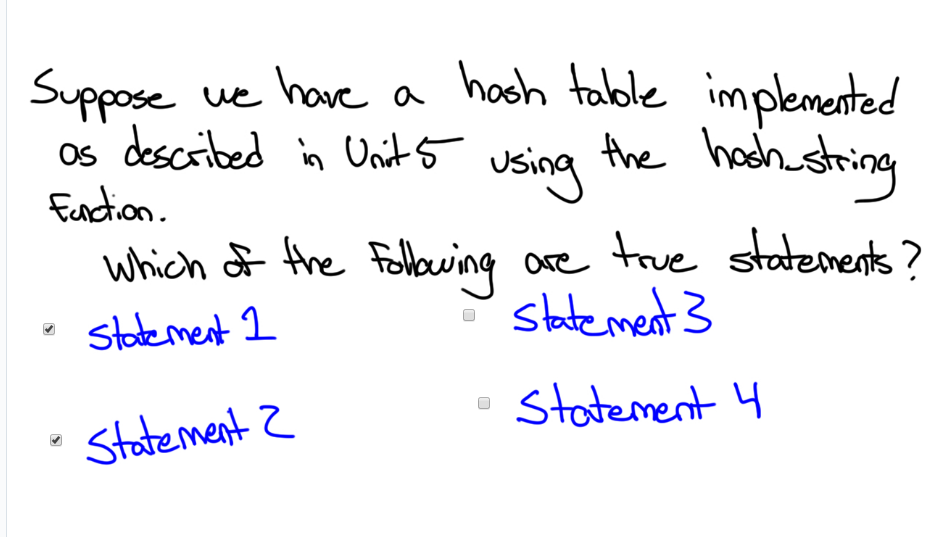 Suppose we have a hash table implemented
as described in Unit 5 using the hash_string
Function.
Which of the following are true statements?
Statement 1
Statement 3
Statement 2
Statement 4